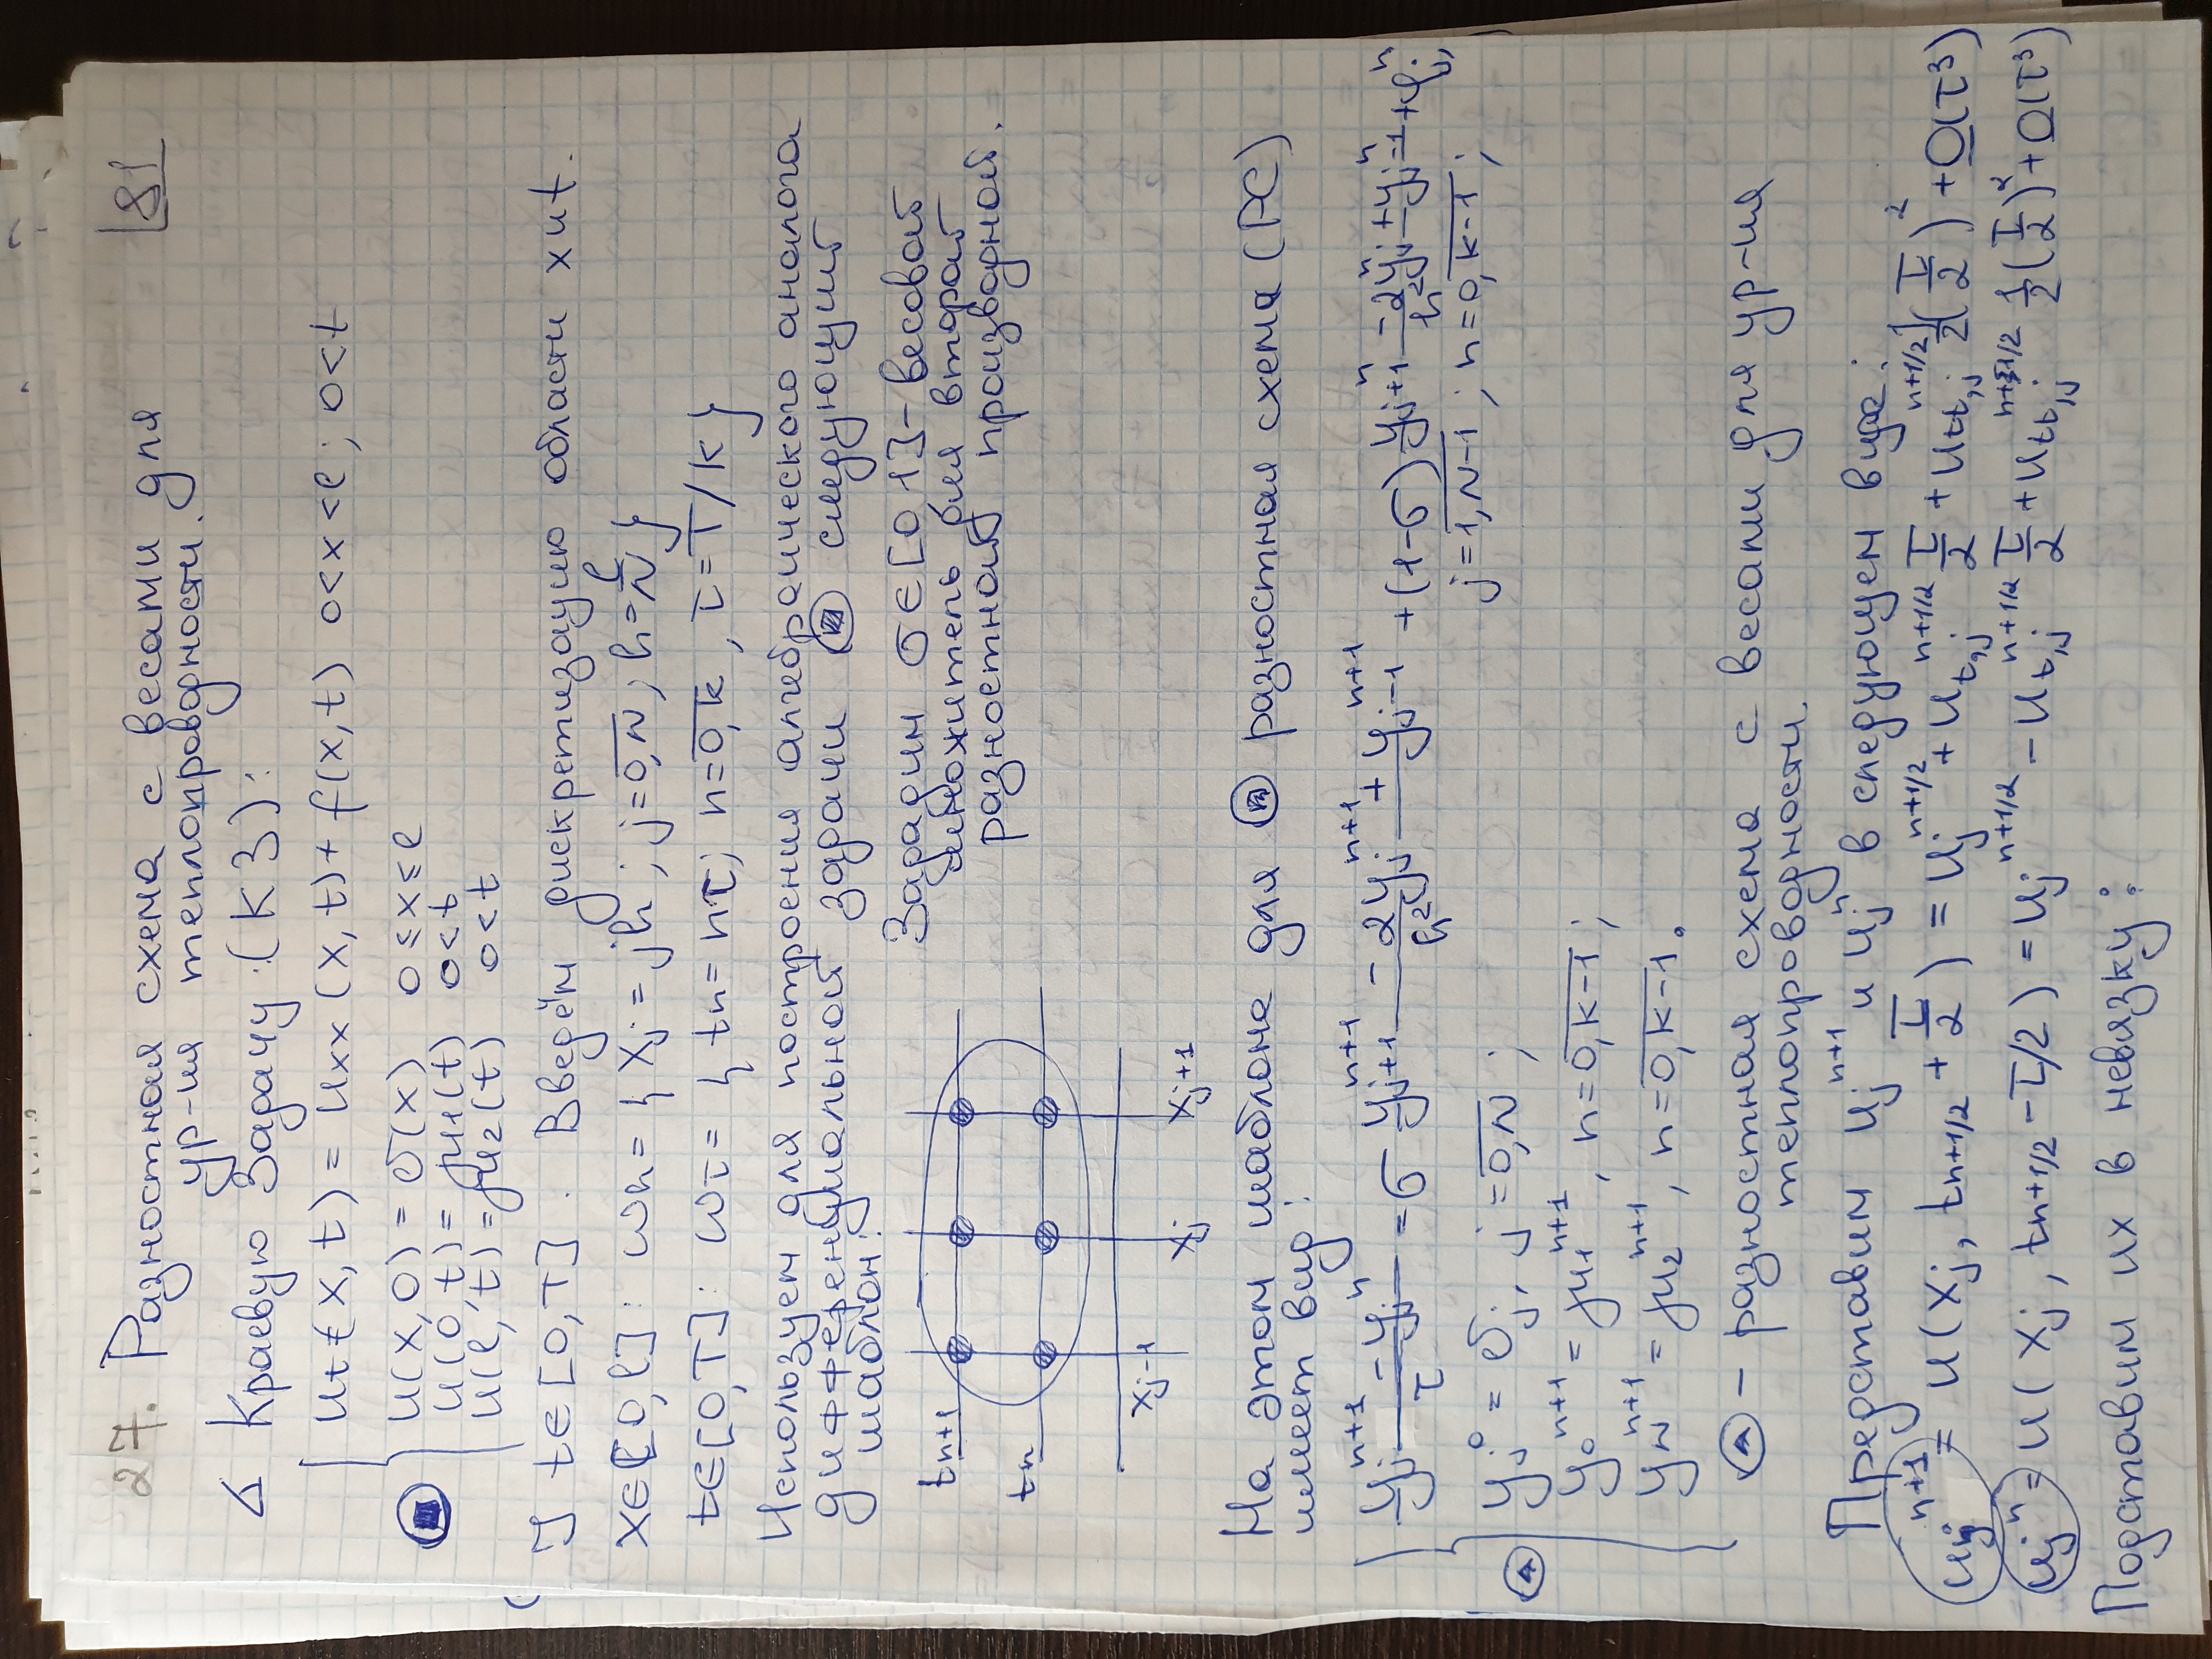 27. Разностная схема с весами для |81
ур-ия теплопроводности.
Δ Краевую задачу (КЗ):
ut(x,t) = uxx(x,t) + f(x,t) 0<x<l; 0<t
u(x,0) = σ(x) 0≤x≤l
u(0,t) = μ1(t) 0<t
u(l,t) = μ2(t) 0<t
∃ t∈[0,T]. Введём дискретизацию области x и t.
x∈[0,l]: ωh = { xj = jh; j=0,N, h=l/N }
t∈[0,T]: ωτ = { tn = nτ; n=0,k, τ=T/k }
Используем для построения алгебраического аналога
дифференциальной задачи следующий
шаблон:
Зададим σ∈[0 1] - весовой
множитель для второй
разностной производной.
tn+1
tn
xj-1 xj xj+1
На этом шаблоне для разностная схема (РС)
имеет вид:
(yj^{n+1} - yj^n)/τ = σ (yj+1^{n+1} - 2yj^{n+1} + yj-1^{n+1})/h² + (1-σ) (yj+1^n - 2yj^n + yj-1^n)/h² + φj^n,
j=1,N-1; n=0,k-1;
yj^0 = σj, j=0,N;
y0^{n+1} = μ1^{n+1}, n=0,k-1;
yN^{n+1} = μ2^{n+1}, n=0,k-1.
- разностная схема с весами для ур-ия
теплопроводности.
Представим uj^{n+1} и uj^n в следующем виде:
uj^{n+1} = u(xj, tn+1/2 + τ/2) = uj^{n+1/2} + ut,j^{n+1/2} τ/2 + utt,j^{n+1/2} 1/2(τ/2)² + O(τ³)
uj^n = u(xj, tn+1/2 - τ/2) = uj^{n+1/2} - ut,j^{n+1/2} τ/2 + utt,j^{n+1/2} 1/2(τ/2)² + O(τ³)
Подставим их в невязку: